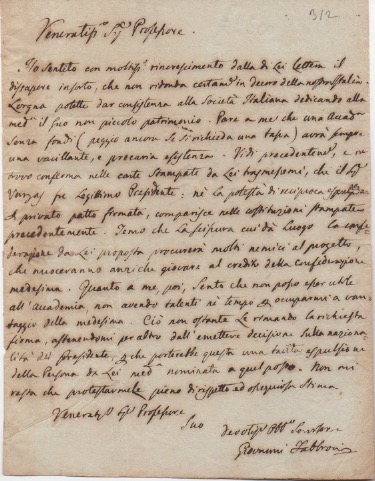 312
Veneratiss.º Sig.r Professore.
Ho sentito con moltiss.º rincrescimento dalla di Lei Lettera il
dissapore insorto, che non ridonda certam.te in decoro della nostra Italia.
Lorgna potette dar consistenza alla Società Italiana dedicando alla
med.ma il suo non piccolo patrimonio. Pare a me che una Accad.a
senza fondi (peggio ancora se si richieda una tassa) avrà sempre
una vacillante, e precaria esistenza. Vidi precedentem.e, e
trovo conferma nelle carte stampate da Lei trasmessemi, che il Sig.r
fu Legittimo Presidente: nè la potestà di reciproca espulsione
privato patto firmata, comparisce nelle costituzioni stampate
precedentemente. Temo che la scissura cui dà Luogo la confe
derazione da Lei proposta procurerà molti nemici al progetto,
che nuoceranno anzi che giovare al credito della confederazione
medesima. Quanto a me, poi, sento che non posso esser utile
all'Accademia, non avendo talenti nè tempo per occuparmi a van
taggio della medesima. Ciò non ostante Le rimando la richiesta
firma, astenendomi per altro dall'emettere decisione sulla naziona
lità del Presidente, che porterebbe questa una tacita espulsione
della Persona da Lei med.ma nominata a quel posto. Non mi
resta che protestarmele pieno di rispetto ed ossequiosa stima
Veneratiss.º Sig.r Professore
Suo
devotiss.º Obb.mo Servitore
Giovanni Fabbroni